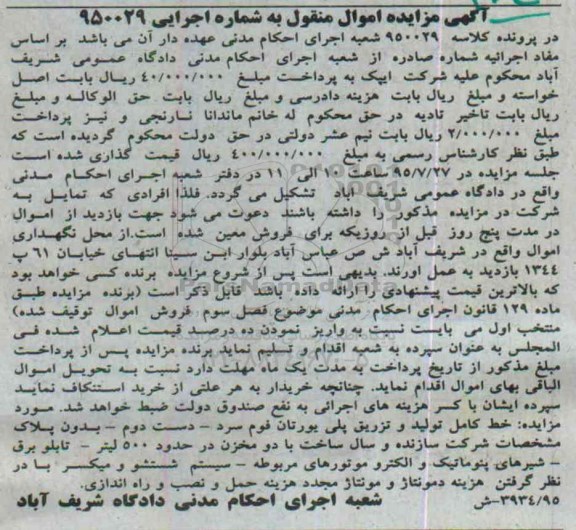 آگهی مزایده اموال منقول به شماره اجرایی ۹۵۰۰۲۹
در پرونده کلاسه ۹۵۰۰۲۹ شعبه اجرای احکام مدنی عهده دار آن می باشد بر اساس
مفاد اجرائیه شماره صادره از شعبه اجرای احکام مدنی دادگاه عمومی شریف
آباد محکوم علیه شرکت ایپک به پرداخت مبلغ ۴۰/۰۰۰/۰۰۰ ریال بابت اصل
خواسته و مبلغ ریال بابت هزینه دادرسی و مبلغ ریال بابت حق الوکاله و مبلغ
ریال بابت تاخیر تادیه در حق محکوم له خانم ماندانا نارنجی و نیز پرداخت
مبلغ ۲/۰۰۰/۰۰۰ ریال بابت نیم عشر دولتی در حق دولت محکوم گردیده است که
طبق نظر کارشناس رسمی به مبلغ ۴۰۰/۰۰۰/۰۰۰ ریال قیمت گذاری شده است
جلسه مزایده در ۹۵/۷/۲۷ ساعت ۱۰ الی ۱۱ در دفتر شعبه اجرای احکام مدنی
واقع در دادگاه عمومی شریف آباد تشکیل می گردد. فلذا افرادی که تمایل به
شرکت در مزایده مذکور را داشته باشند دعوت می شود جهت بازدید از اموال
در مدت پنج روز قبل از روزیکه برای فروش معین شده است.از محل نگهداری
اموال واقع در شریف آباد ش ص عباس آباد بلوار ابن سینا انتهای خیابان ۶۱ پ
۱۳۴۴ بازدید به عمل آورند. بدیهی است پس از شروع مزایده برنده کسی خواهد بود
که بالاترین قیمت پیشنهادی را ارائه داده باشد قابل ذکر است (برنده مزایده طبق
ماده ۱۲۹ قانون اجرای احکام مدنی موضوع فصل سوم فروش اموال توقیف شده)
منتخب اول می بایست نسبت به واریز نمودن ده درصد قیمت اعلام شده فی
المجلس به عنوان سپرده به شعبه اقدام و تسلیم نماید برنده مزایده پس از پرداخت
مبلغ مذکور از تاریخ پرداخت به مدت یک ماه مهلت دارد نسبت به تحویل اموال
الباقی بهای اموال اقدام نماید. چنانچه خریدار به هر علتی از خرید استنکاف نماید
سپرده ایشان با کسر هزینه های اجرائی به نفع صندوق دولت ضبط خواهد شد. مورد
مزایده: خط کامل تولید و تزریق پلی یورتان فوم سرد – دست دوم – بدون پلاک
مشخصات شرکت سازنده و سال ساخت با دو مخزن در حدود ۵۰۰ لیتر – تابلو برق
– شیرهای پنوماتیک و الکترو موتورهای مربوطه – سیستم شستشو و میکسر با در
نظر گرفتن هزینه دمونتاژ و مونتاژ مجدد هزینه حمل و نصب و راه اندازی.
۳۹۳۴/۹۵–ش شعبه اجرای احکام مدنی دادگاه شریف آباد